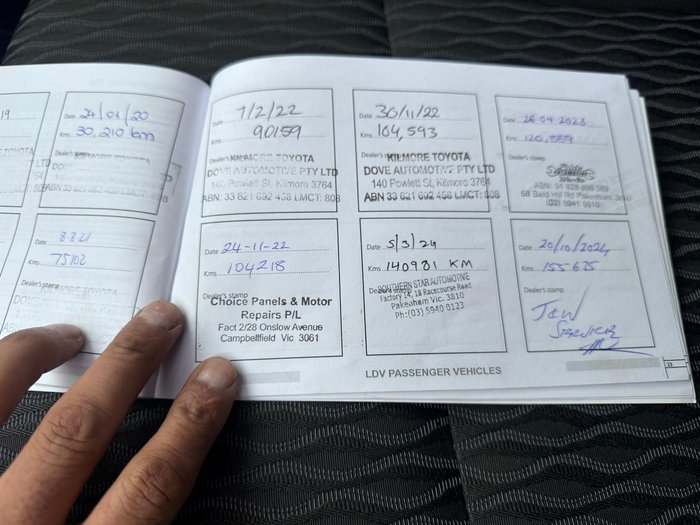 19
24/01/20
Kms 30,210 km
Dealer's stamp
8.8.21
75102
7/2/22
90159
Dealer's KILMORE TOYOTA
DOVE AUTOMOTIVE PTY LTD
140 Powlett St, Kilmore 3764
ABN 33 621 692 458 LMCT: 808
Date 24-11-22
Kms 104218
Dealer's stamp
Choice Panels & Motor
Repairs P/L
Fact 2/28 Onslow Avenue
Campbellfield Vic 3061
Date 30/11/22
Kms 104,593
Dealer's KILMORE TOYOTA
DOVE AUTOMOTIVE PTY LTD
140 Powlett St, Kilmore 3764
ABN 33 621 692 458 LMCT: 808
Date 5/3/24
Kms 140981 KM
Dealer's stamp
SOUTHERN STAR AUTOMOTIVE
Factory 14, 18 Racecourse Road
Pakenham Vic. 3810
Ph:(03) 5940 0123
Date 26 04 2023
Kms
Dealer's stamp
68 Bald Hill Rd Pakenham 3810
(03) 5941 5510
Date 20/10/2024
Kms 155675
Dealer's stamp
JCW
SERVICE
LDV PASSENGER VEHICLES
33